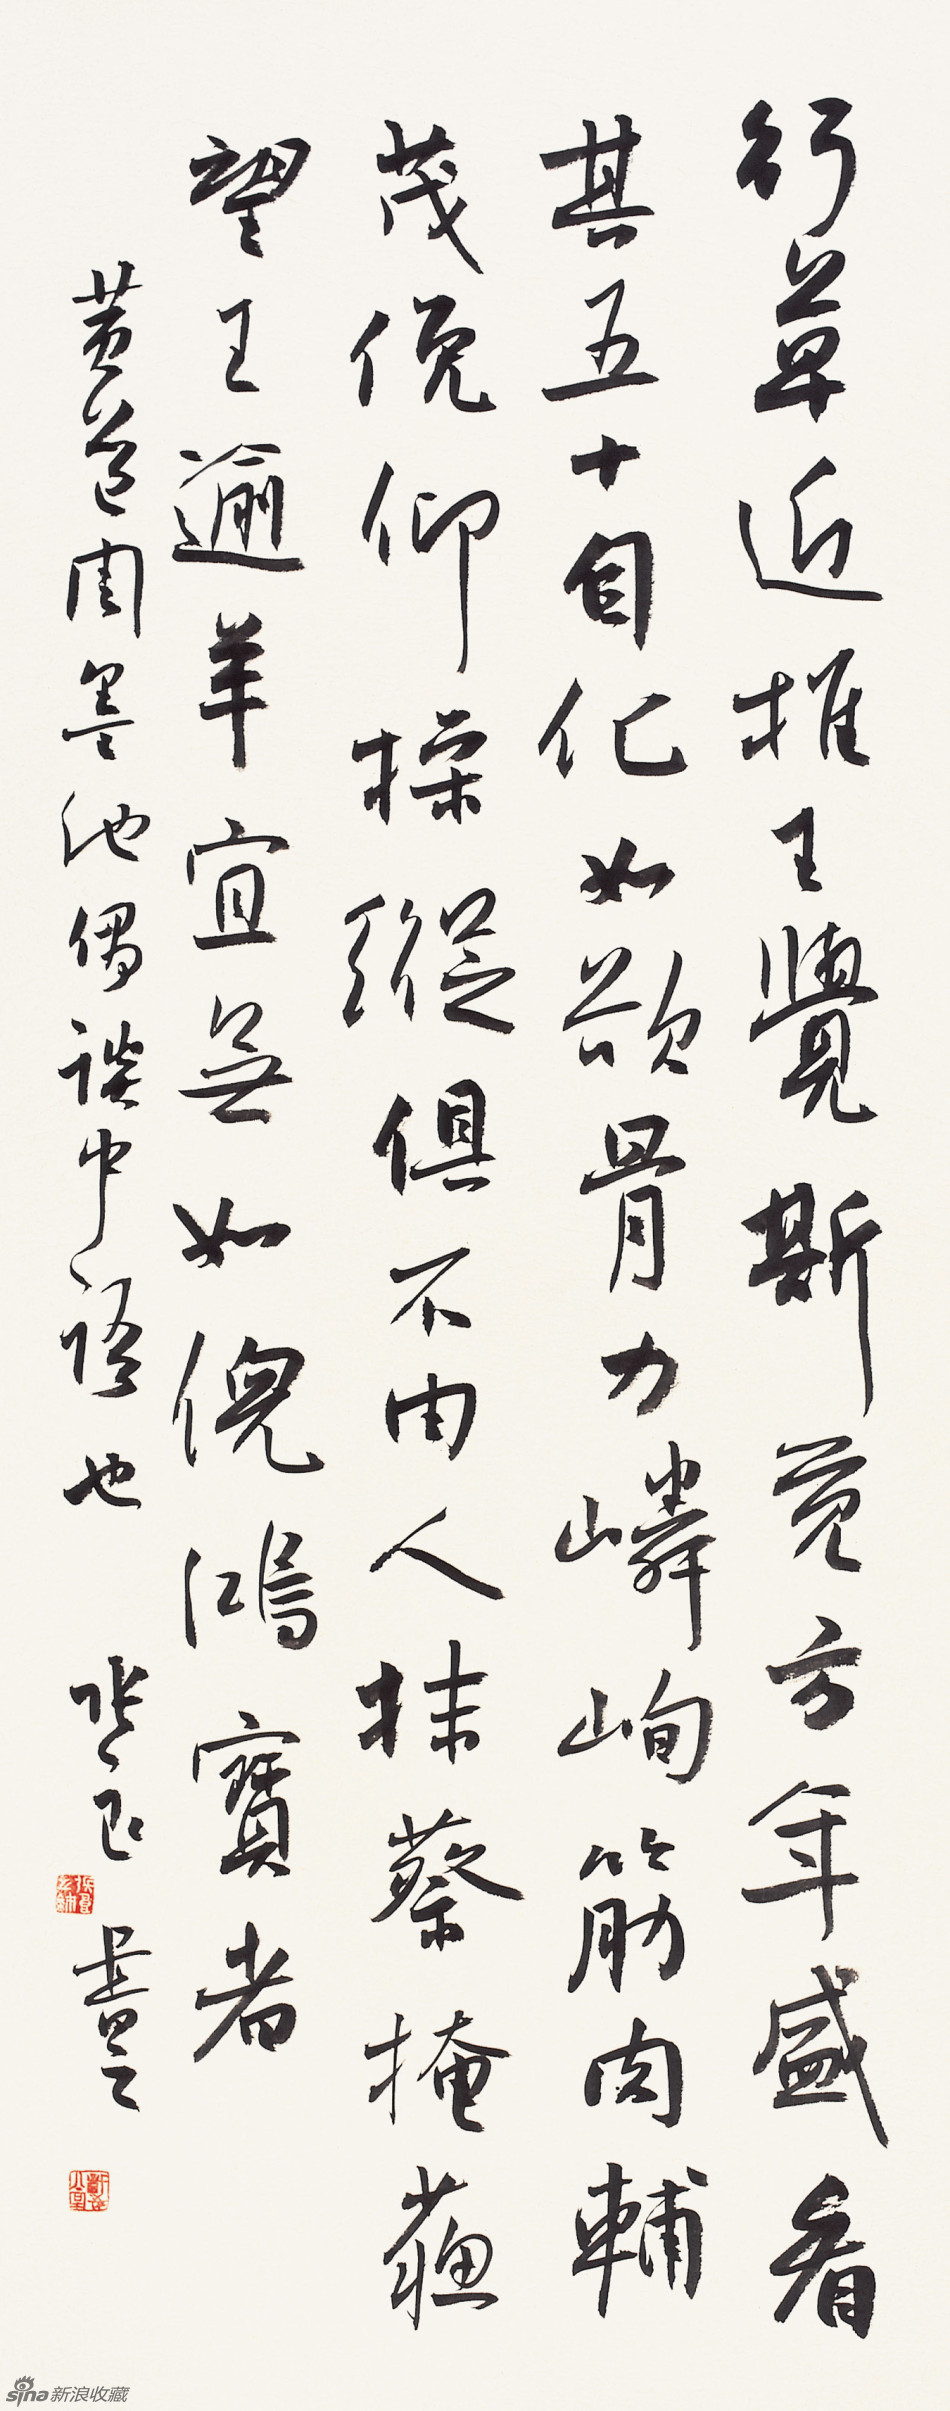 行草近推王覺斯覓方年盛看
其五十自化如欲骨力嶙峋筋肉輔
茂俛仰操縱俱不由人抹蔡掩蘇
望王逾羊宜無如倪鴻寶者
黄道周墨池偶談中語也
sina新浪收藏